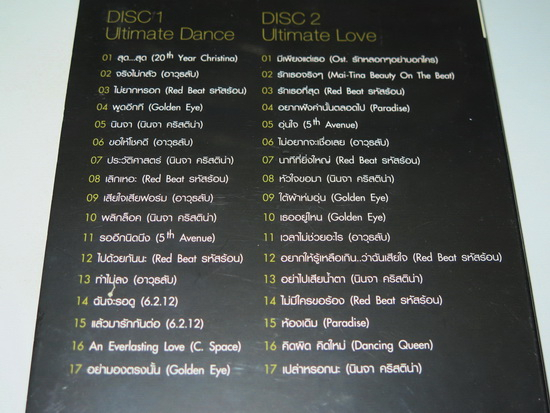 DISC 1
Ultimate Dance
01 สุด...สุด (20th Year Christina)
02 จริงไม่กลัว (อาวุธลับ)
03 ไม่ยากหรอก (Red Beat รหัสร้อน)
04 พูดอีกที (Golden Eye)
05 นินจา (นินจา คริสติน่า)
06 ขอให้โชคดี (อาวุธลับ)
07 ประวัติศาสตร์ (นินจา คริสติน่า)
08 เลิกเหอะ (Red Beat รหัสร้อน)
09 เสียใจเสียฟอร์ม (อาวุธลับ)
10 พลิกล็อค (นินจา คริสติน่า)
11 รออีกนิดนึง (5th Avenue)
12 ไปด้วยกันนะ (Red Beat รหัสร้อน)
13 ทำไม่ลง (อาวุธลับ)
14 ฉันจะรอดู (6.2.12)
15 แล้วมารักกันต่อ (6.2.12)
16 An Everlasting Love (C. Space)
17 อย่ามองตรงนั้น (Golden Eye)
DISC 2
Ultimate Love
01 มีเพียงแต่เธอ (Ost. รักหลอกๆอย่าบอกใคร)
02 รักเธอจริงๆ (Mai-Tina Beauty On The Beat)
03 รักเธอที่สุด (Red Beat รหัสร้อน)
04 อยากฟังคำนั้นตลอดไป (Paradise)
05 อุ่นใจ (5th Avenue)
06 ไม่อยากจะเชื่อเลย (อาวุธลับ)
07 นาทีที่ยิ่งใหญ่ (Red Beat รหัสร้อน)
08 หัวใจขอมา (นินจา คริสติน่า)
09 ใต้ผ้าห่มอุ่น (Golden Eye)
10 เธออยู่ไหน (Golden Eye)
11 เวลาไม่ช่วยอะไร (อาวุธลับ)
12 อยากให้รู้เหลือเกิน..ว่าฉันเสียใจ (Red Beat รหัสร้อน)
13 อย่าไปเสียน้ำตา (นินจา คริสติน่า)
14 ไม่มีใครขอร้อง (Red Beat รหัสร้อน)
15 ห้องเดิม (Paradise)
16 คิดผิด คิดใหม่ (Dancing Queen)
17 เปล่าหรอกนะ (นินจา คริสติน่า)